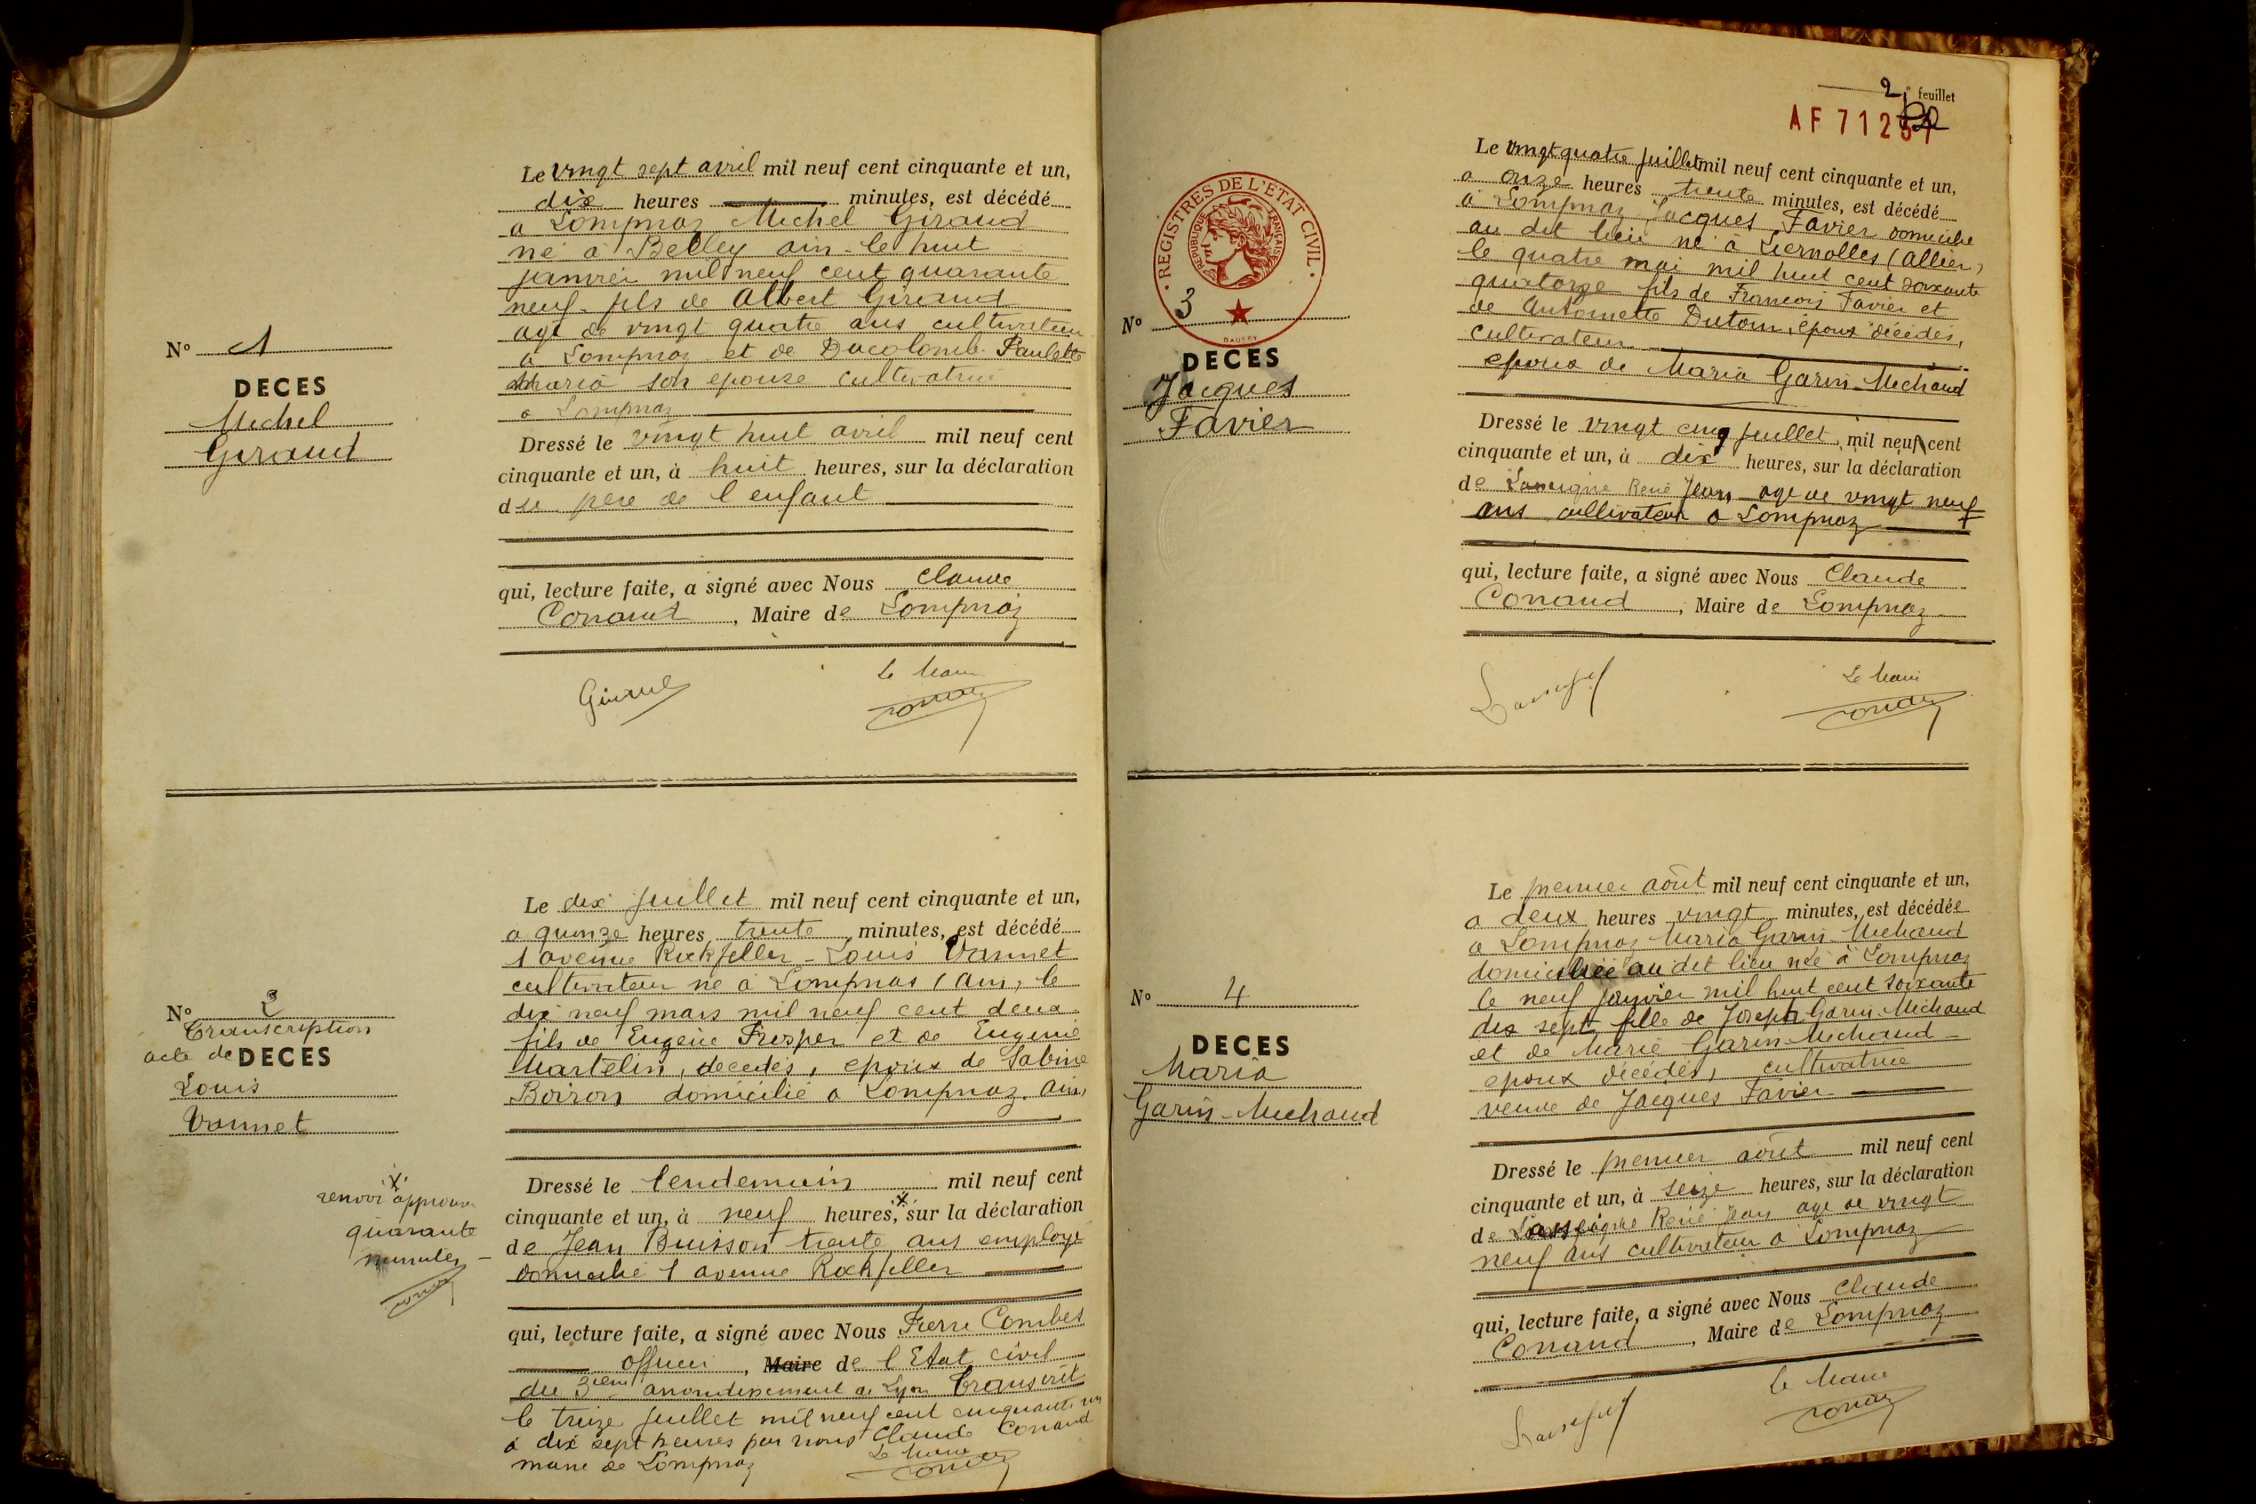 Nº 1
DECES
Michel
Giraud
Le vingt sept avril mil neuf cent cinquante et un,
dix heures minutes, est décédé
a Lompnaz Michel Giraud
né a Belley ain le huit
janvier mil neuf cent quarante
neuf fils de Albert Giraud
agé de vingt quatre ans cultivateur
a Lompnaz et de Ducolomb Paulette
Maria son epouse cultivatrice
a Lompnaz
Dressé le vingt huit avril mil neuf cent
cinquante et un, à huit heures, sur la déclaration
du pere de l enfant
qui, lecture faite, a signé avec Nous Claude
Conand, Maire de Lompnaz
Giraud
Le Maire
Conand
Nº 2
Transcription
acte de DECES
Louis
Vannet
x
renvoi approuvé
quarante
minutes
Le dix juillet mil neuf cent cinquante et un,
a quinze heures trente minutes, est décédé
1 avenue Rockfeller - Louis Vannet
cultivateur né a Lompnas (ain) le
dix neuf mars mil neuf cent deux
fils de Eugène Prosper et de Eugenie
Martelin, décédés, epoux de Sabine
Boiron domicilié a Lompnaz. ain,
Dressé le lendemain mil neuf cent
cinquante et un, à neuf heures, x sur la déclaration
de Jean Buisson trente ans employé
domicilié 1 avenue Rockfeller
qui, lecture faite, a signé avec Nous Pierre Combes
officier, Maire de l Etat civil
du 3ieme arrondissement de Lyon Transcrit
le treize juillet mil neuf cent cinquante un
à dix sept heures par nous Claude Conand
maire de Lompnaz
Le Maire
Conand
2e feuillet
AF 712
REGISTRES DE L'ETAT CIVIL
REPUBLIQUE FRANÇAISE
Nº 3
DECES
Jacques
Favier
Le vingt quatre juillet mil neuf cent cinquante et un,
a onze heures trente minutes, est décédé
à Lompnaz Jacques Favier domicilié
au dit lieu né a Liernolles (Allier)
le quatre mai mil huit cent soixante
quatorze fils de François Favier et
de Antoinette Dutour, époux décédés,
cultivateur
epoux de Maria Garin-Michaud
Dressé le vingt cinq juillet mil neuf cent
cinquante et un, à dix heures, sur la déclaration
de René Jean agé de vingt neuf
ans cultivateur a Lompnaz
qui, lecture faite, a signé avec Nous Claude
Conand, Maire de Lompnaz
Le Maire
Conand
Nº 4
DECÈS
Maria
Garin-Michaud
Le premier août mil neuf cent cinquante et un,
a deux heures vingt minutes, est décédée
a Lompnaz Maria Garin-Michaud
domiciliée au dit lieu née à Lompnaz
le neuf janvier mil huit cent soixante
dix sept fille de Joseph Garin-Michaud
et de Marie Garin-Michaud
epoux décédés, cultivatrice
veuve de Jacques Favier
Dressé le premier août mil neuf cent
cinquante et un, à seize heures, sur la déclaration
de René Jean agé de vingt
neuf ans cultivateur a Lompnaz
qui, lecture faite, a signé avec Nous Claude
Conand, Maire de Lompnaz
Le Maire
Conand